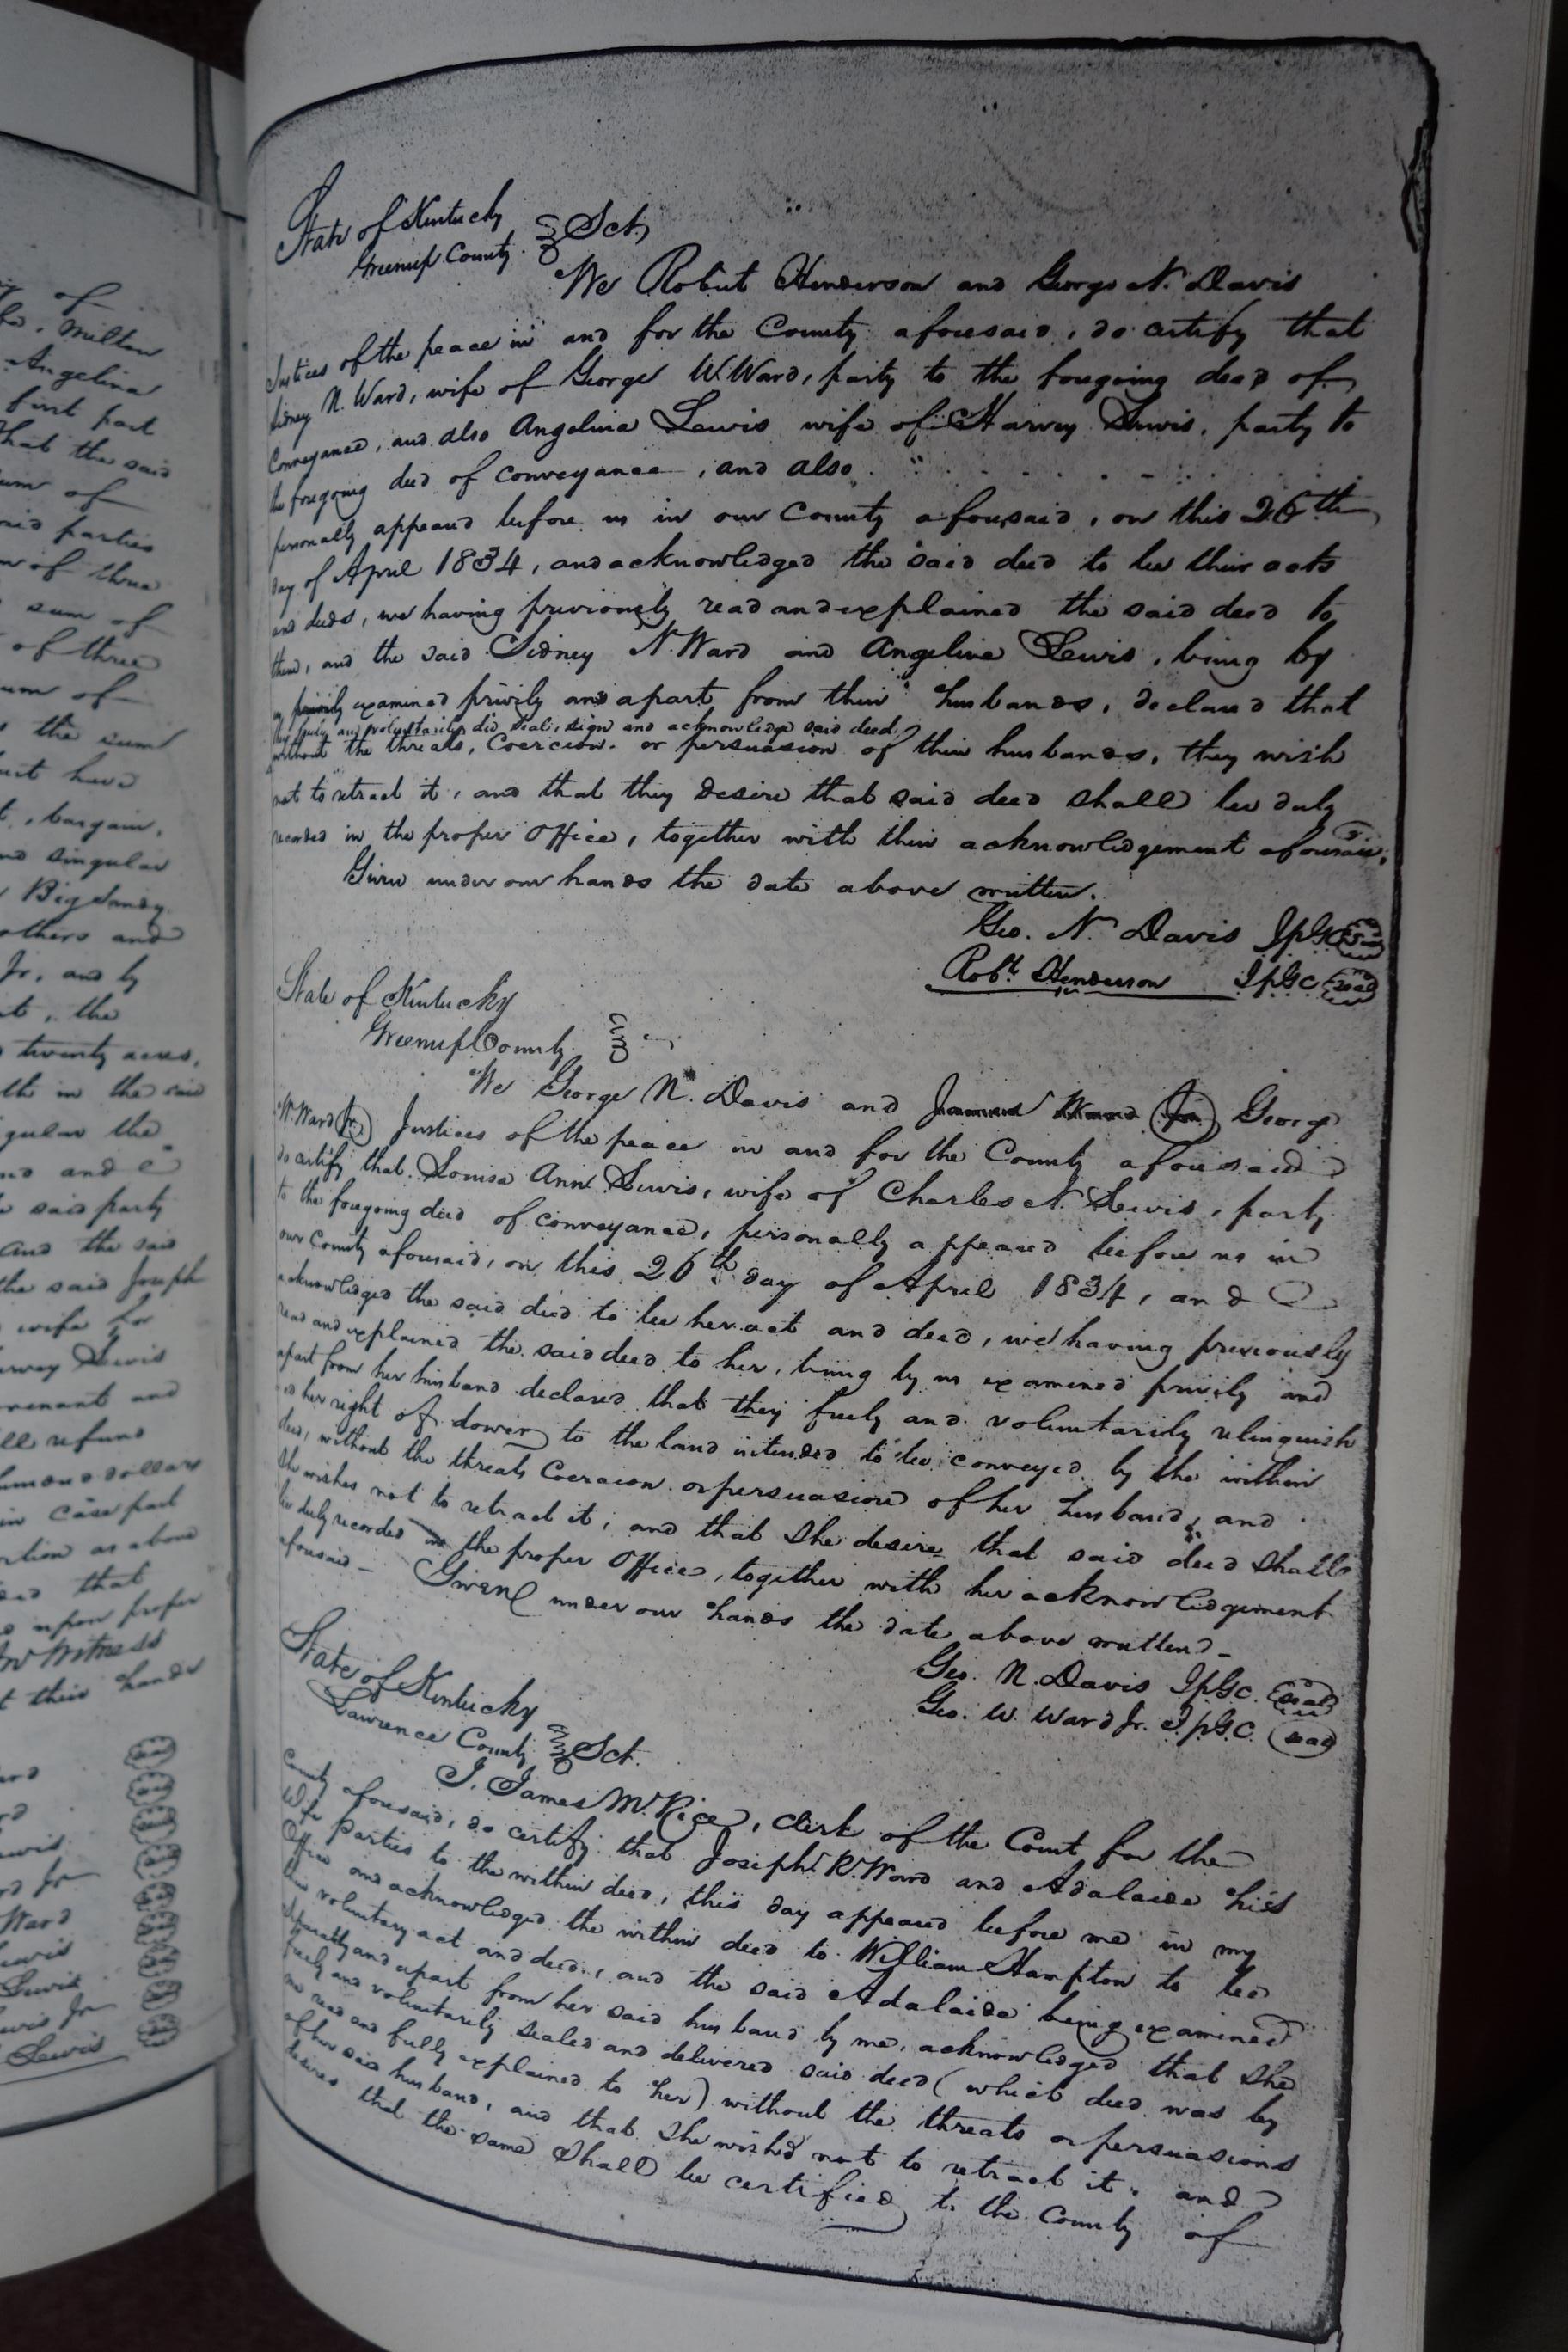 of
Milton
Angelina
first part
that the said
sum of
said parties
of three
sum of
of three
sum of
the sum
bargain,
and singular
Big Sandy
others and
Jr, and by
the
twenty acres,
in the said
the
and
said party
and the said
the said Joseph
wife for
Harvey Lewis
covenant and
refund
thousand dollars
in case part
as above
that
upon proper
In Witness
their hands
Jr
Ward
Lewis
Lewis
Lewis Jr
Lewis
State of Kentucky
Greenup County Sct,
We Robert Henderson and George N. Davis
Justices of the peace in and for the County aforesaid, do certify that
Sidney N. Ward, wife of George W. Ward, party to the foregoing deed of
Conveyance, and also Angelina Lewis wife of Harvey Lewis, party to
the foregoing deed of conveyance, and also
personally appeared before us in our County aforesaid, on this 26th
day of April 1834, and acknowledged the said deed to be their acts
and deeds, we having previously read and explained the said deed to
them, and the said Sidney N. Ward and Angeline Lewis, being by
examined privily and apart from their husbands, declared that
they freely and voluntarily did seal, sign and acknowledge said deed
without the threats, Coercion or persuasion of their husbands, they wish
not to retract it, and that they desire that said deed shall be duly
recorded in the proper Office, together with their acknowledgement aforesaid,
Given under our hands the date above written.
Geo. N. Davis JPGC Seal
Robt. Henderson JPGC Seal
State of Kentucky
Greenup County
We George N. Davis and James Ward Jr George
W. Ward Jr. Justices of the peace in and for the County aforesaid
do certify that Louisa Ann Lewis, wife of Charles N. Lewis, party
to the foregoing deed of conveyance, personally appeared before us in
our County aforesaid, on this 26th day of April 1834, and
acknowledged the said deed to be her act and deed, we having previously
read and explained the said deed to her, being by us examined privily and
apart from her husband declared that they freely and voluntarily relinquish
her right of dower to the land intended to be conveyed by the within
deed, without the threats Coercion or persuasion of her husband, and
she wishes not to retract it, and that She desire that said deed shall
be duly recorded in the proper Office, together with her acknowledgement
aforesaid - Given under our hands the date above written -
Geo. N. Davis JPGC. Seal
Geo. W. Ward Jr. JPGC. Seal
State of Kentucky
Lawrence County Sct.
I, James M. Rice, Clerk of the Court for the
County aforesaid, do certify that Joseph R. Ward and Adalaide his
Wife parties to the within deed, this day appeared before me in my
Office and acknowledged the within deed to William Hampton to be
their voluntary act and deed, and the said Adalaide being examined
separately and apart from her said husband by me, acknowledged that She
freely and voluntarily sealed and delivered said deed (which deed was by
me read and fully explained to her) without the threats or persuasions
of her said husband, and that She wished not to retract it, and
desires that the same shall be certified to the County of